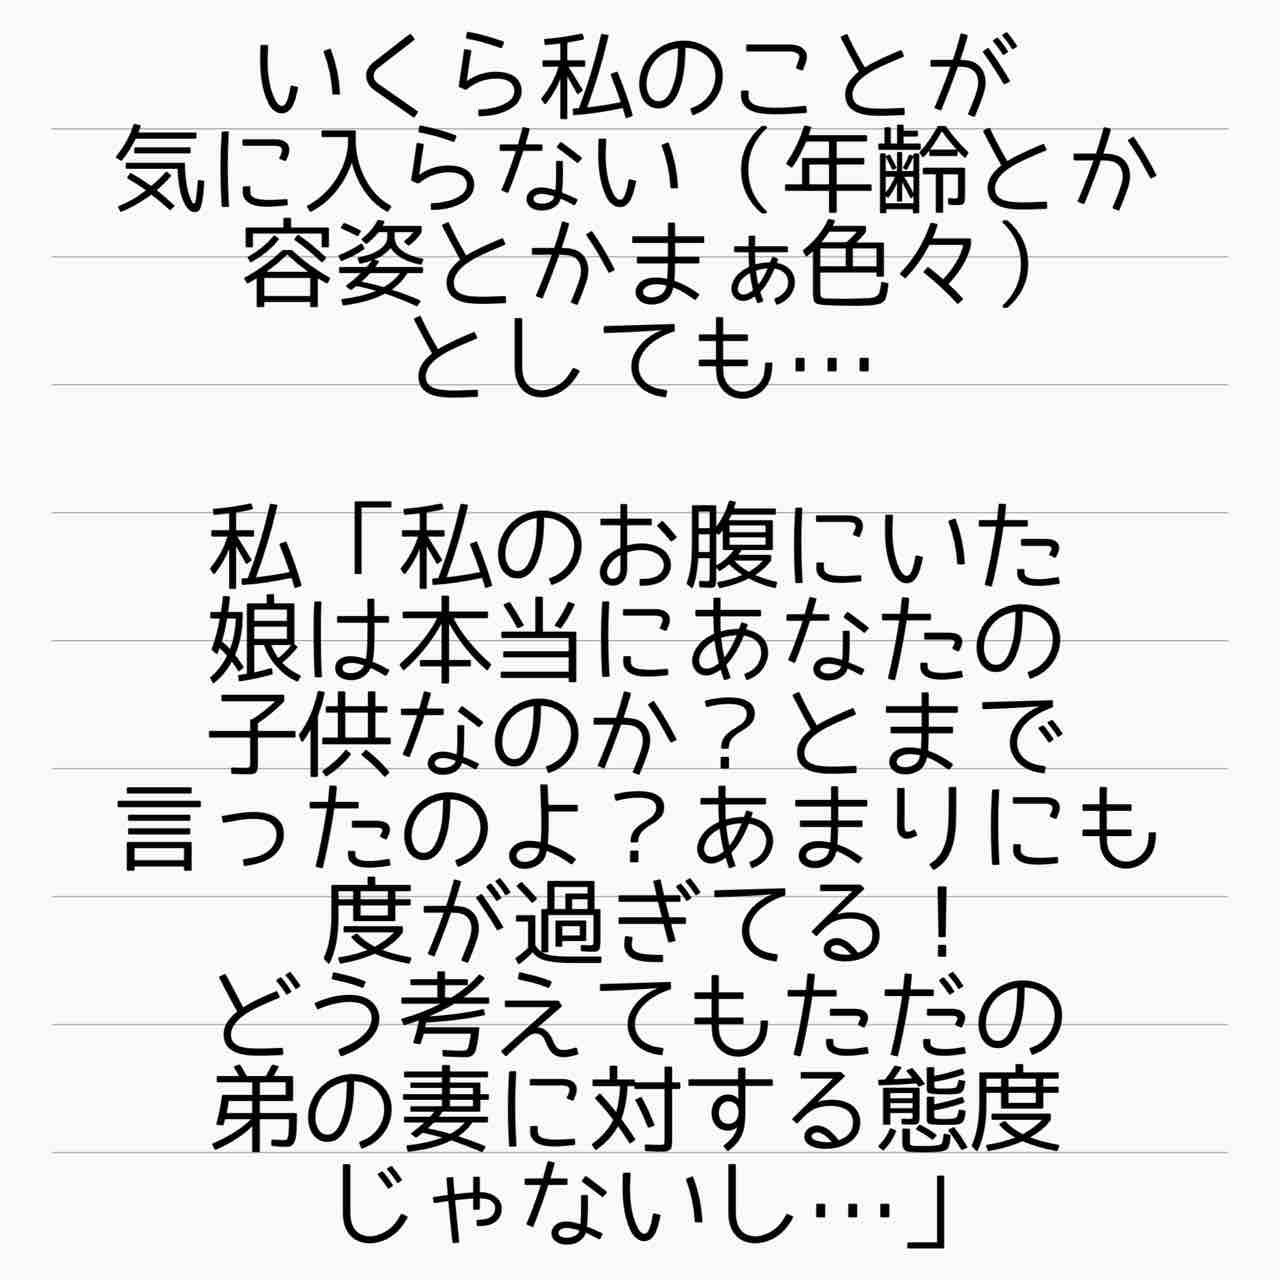 いくら私のことが
気に入らない（年齢とか
容姿とかまぁ色々）
としても…
私「私のお腹にいた
娘は本当にあなたの
子供なのか？とまで
言ったのよ？あまりにも
度が過ぎてる！
どう考えてもただの
弟の妻に対する態度
じゃないし…」